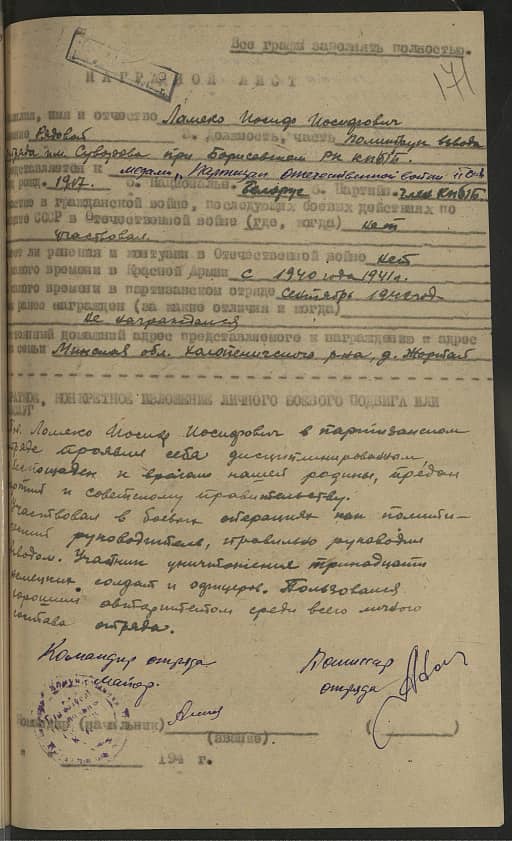 Все графы заполнять полностью.
171
НАГРАДНОЙ ЛИСТ
имя и отчество Ламеко Иосиф Иосифович
Рядовой 3. Должность, часть политрук взвода
им. Суворова при Борисовском РК КП/б/Б.
к медали "Партизан Отечественной войны" II ст.
1917. 5. Национальн. Белорус 6. Партийн. член КП/б/Б.
в гражданской войне, последующих боевых действиях по
СССР в Отечественной войне (где, когда) не
участвовал.
ли ранения и контузии в Отечественной войне нет
времени в Красной Армии с 1940 года 1941 г.
времени в партизанском отряде сентябрь 194 год
ранее награжден (за какие отличия и когда)
не награждался
домашний адрес представляемого к награждению и адрес
семьи Минская обл. Холопеничского р-на, д.
КОНКРЕТНОЕ ИЗЛОЖЕНИЕ ЛИЧНОГО БОЕВОГО ПОДВИГА ИЛИ
Ламеко Иосиф Иосифович в партизанском
проявил себя дисциплинированным,
к врагам нашей родины, предан
и советскому правительству.
Участвовал в боевых операциях как полити-
руководитель, правильно руководил
взводом. Участник уничтожения тринадцати
немецких солдат и офицеров. Пользовался
хорошим авторитетом среди всего личного
состава отряда.
Командир отряда Комиссар
майор. отряда
(начальник)
(звание)
194 г.